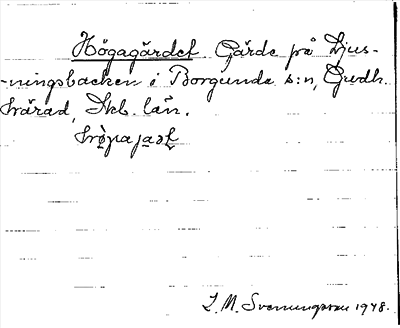 Högagärdet Gärde på Ljus-
-ningsbacken i Borgunda s:n, Gudh.
härad, Skb. län.
I. M. Svenungsson 1948.